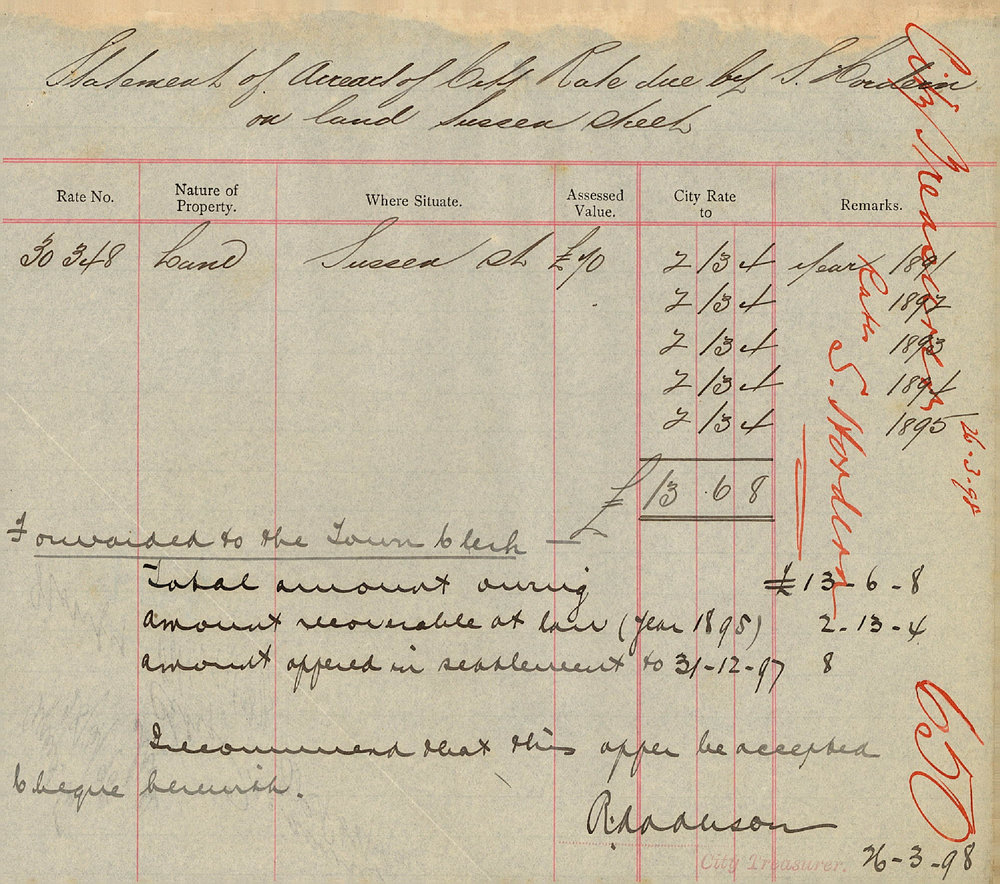 Statement of Arrears of City Rate due by S. Hordern
on land Sussex Street
Rate No. Nature of Property. Where Situate. Assessed Value. City Rate to Remarks.
30348 Land Sussex St £70 2 13 4 year 1891
2 13 4 1892
2 13 4 1893
2 13 4 1894
2 13 4 1895
£ 13 . 6 8
Forwarded to the Town Clerk —
Total amount owing £13-6-8
amount recoverable at law (year 1895) 2-13-4
amount offered in settlement to 31-12-97 8
I recommend that this offer be accepted
Cheque herewith.
City Treasurer.
26-3-98
City Treasurer
26-3-98
Rates S. Hordern
650